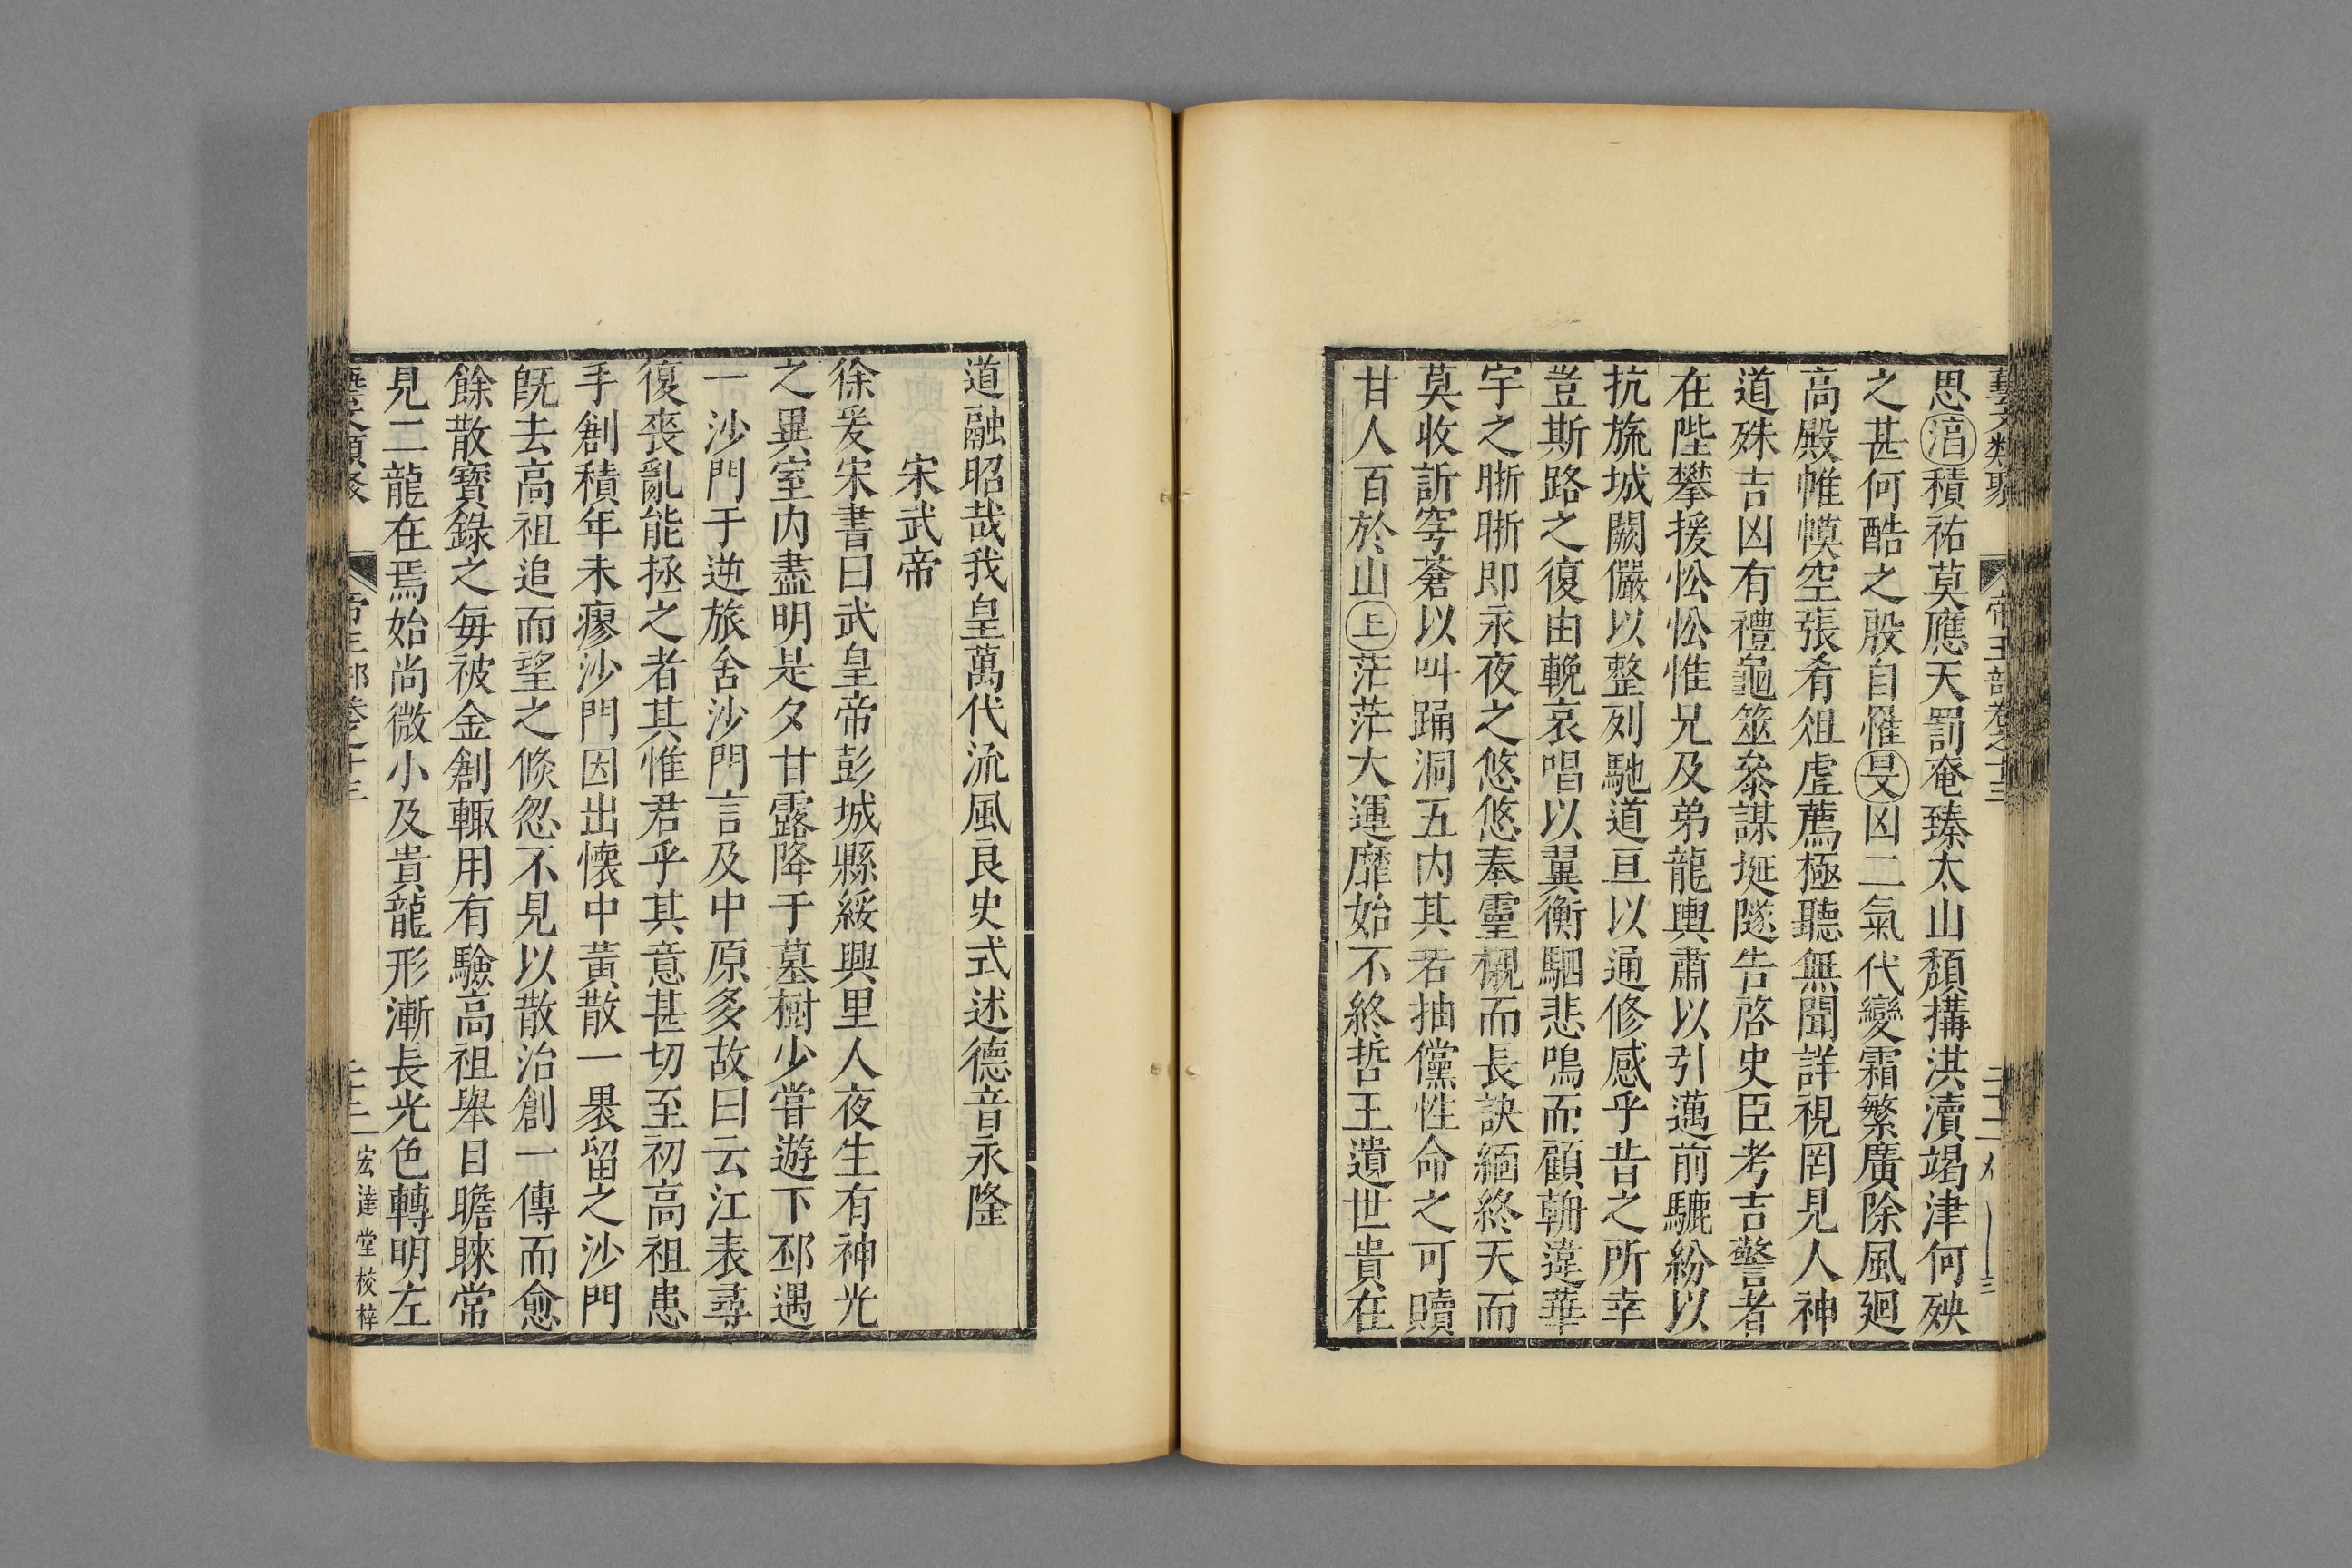 藝文類聚 帝王部卷之十三
思滔積祐莫應天罰奄臻太山頹搆洪瀆竭津何殃
之甚何酷之殷自罹旻凶二氣代變霜繁廣除風廻
高殿帷幙空張肴俎虗薦極聽無聞詳視罔見人神
道殊吉凶有禮龜筮叅謀埏隧告啓史臣考吉警者
在陛攀援忪忪惟兄及弟龍輿肅以引邁前驂紛以
抗旒城闕儼以整列馳道亘以通修感乎昔之所幸
豈斯路之復由輓哀唱以翼衡駟悲鳴而顧輈違華
宇之晣晣即永夜之悠悠奉靈櫬而長訣緬終天而
莫收訢穹蒼以叫踊洞五内其若抽儻性命之可贖
甘人百於山上茫茫大運靡始不終哲王遺世貴在
道融昭哉我皇萬代流風良史式述德音永隆
宋武帝
徐爰宋書曰武皇帝彭城縣綏輿里人夜生有神光
之異室内盡明是夕甘露降于墓樹少甞遊下邳遇
一沙門于逆旅舍沙門言及中原多故曰云江表尋
復喪亂能拯之者其惟君乎其意甚切至初高祖患
手創積年未瘳沙門因出懷中黃散一裹留之沙門
旣去高祖追而望之倐忽不見以散治創一傳而愈
餘散寶錄之毎被金創輙用有驗高祖舉目瞻睞常
見二龍在焉始尚微小及貴龍形漸長光色轉明左
宏達堂校梓